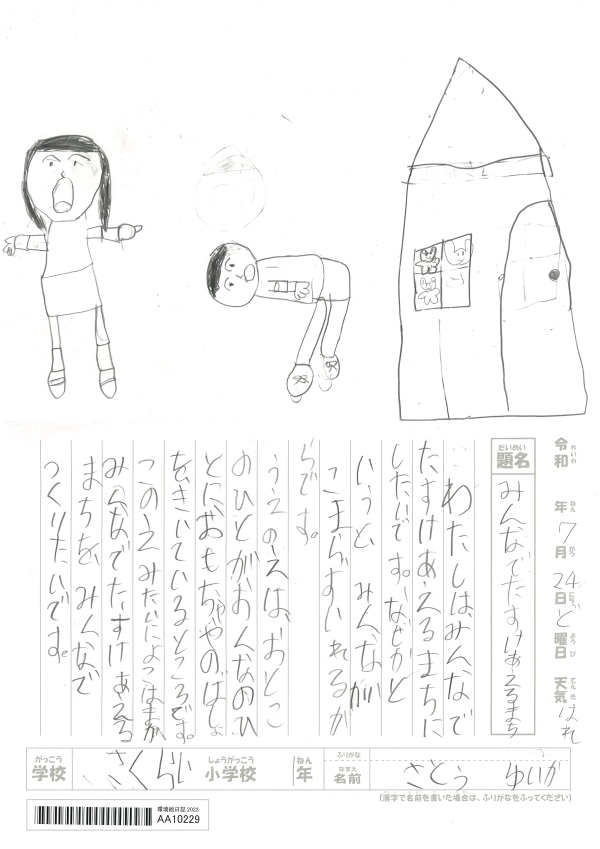 令和 年 7月 24日 ど曜日 天気 はれ
れいわ ねん がつ にち ようび てんき
だいめい
題名 みんなでたすけあえるまち
わたしはみんなで
たすけあえるまちに
したいです。なぜかと
いうと、みんなが
こまらずすいれるか
らです。
うえのえは、おとこ
のひとがおんなのひ
とにおもちゃやのばしょ
をきいているところです。
このえみたいによこはまが
みんなでたすけあえる
まちを、みんなで
つくりたいです。
がっこう しょうがっこう ねん ふりがな なまえ
学校 さくらい 小学校 1年 名前 さとう ゆいか
(漢字で名前を書いた場合は、ふりがなをふってください)
環境絵日記2022
AA10229